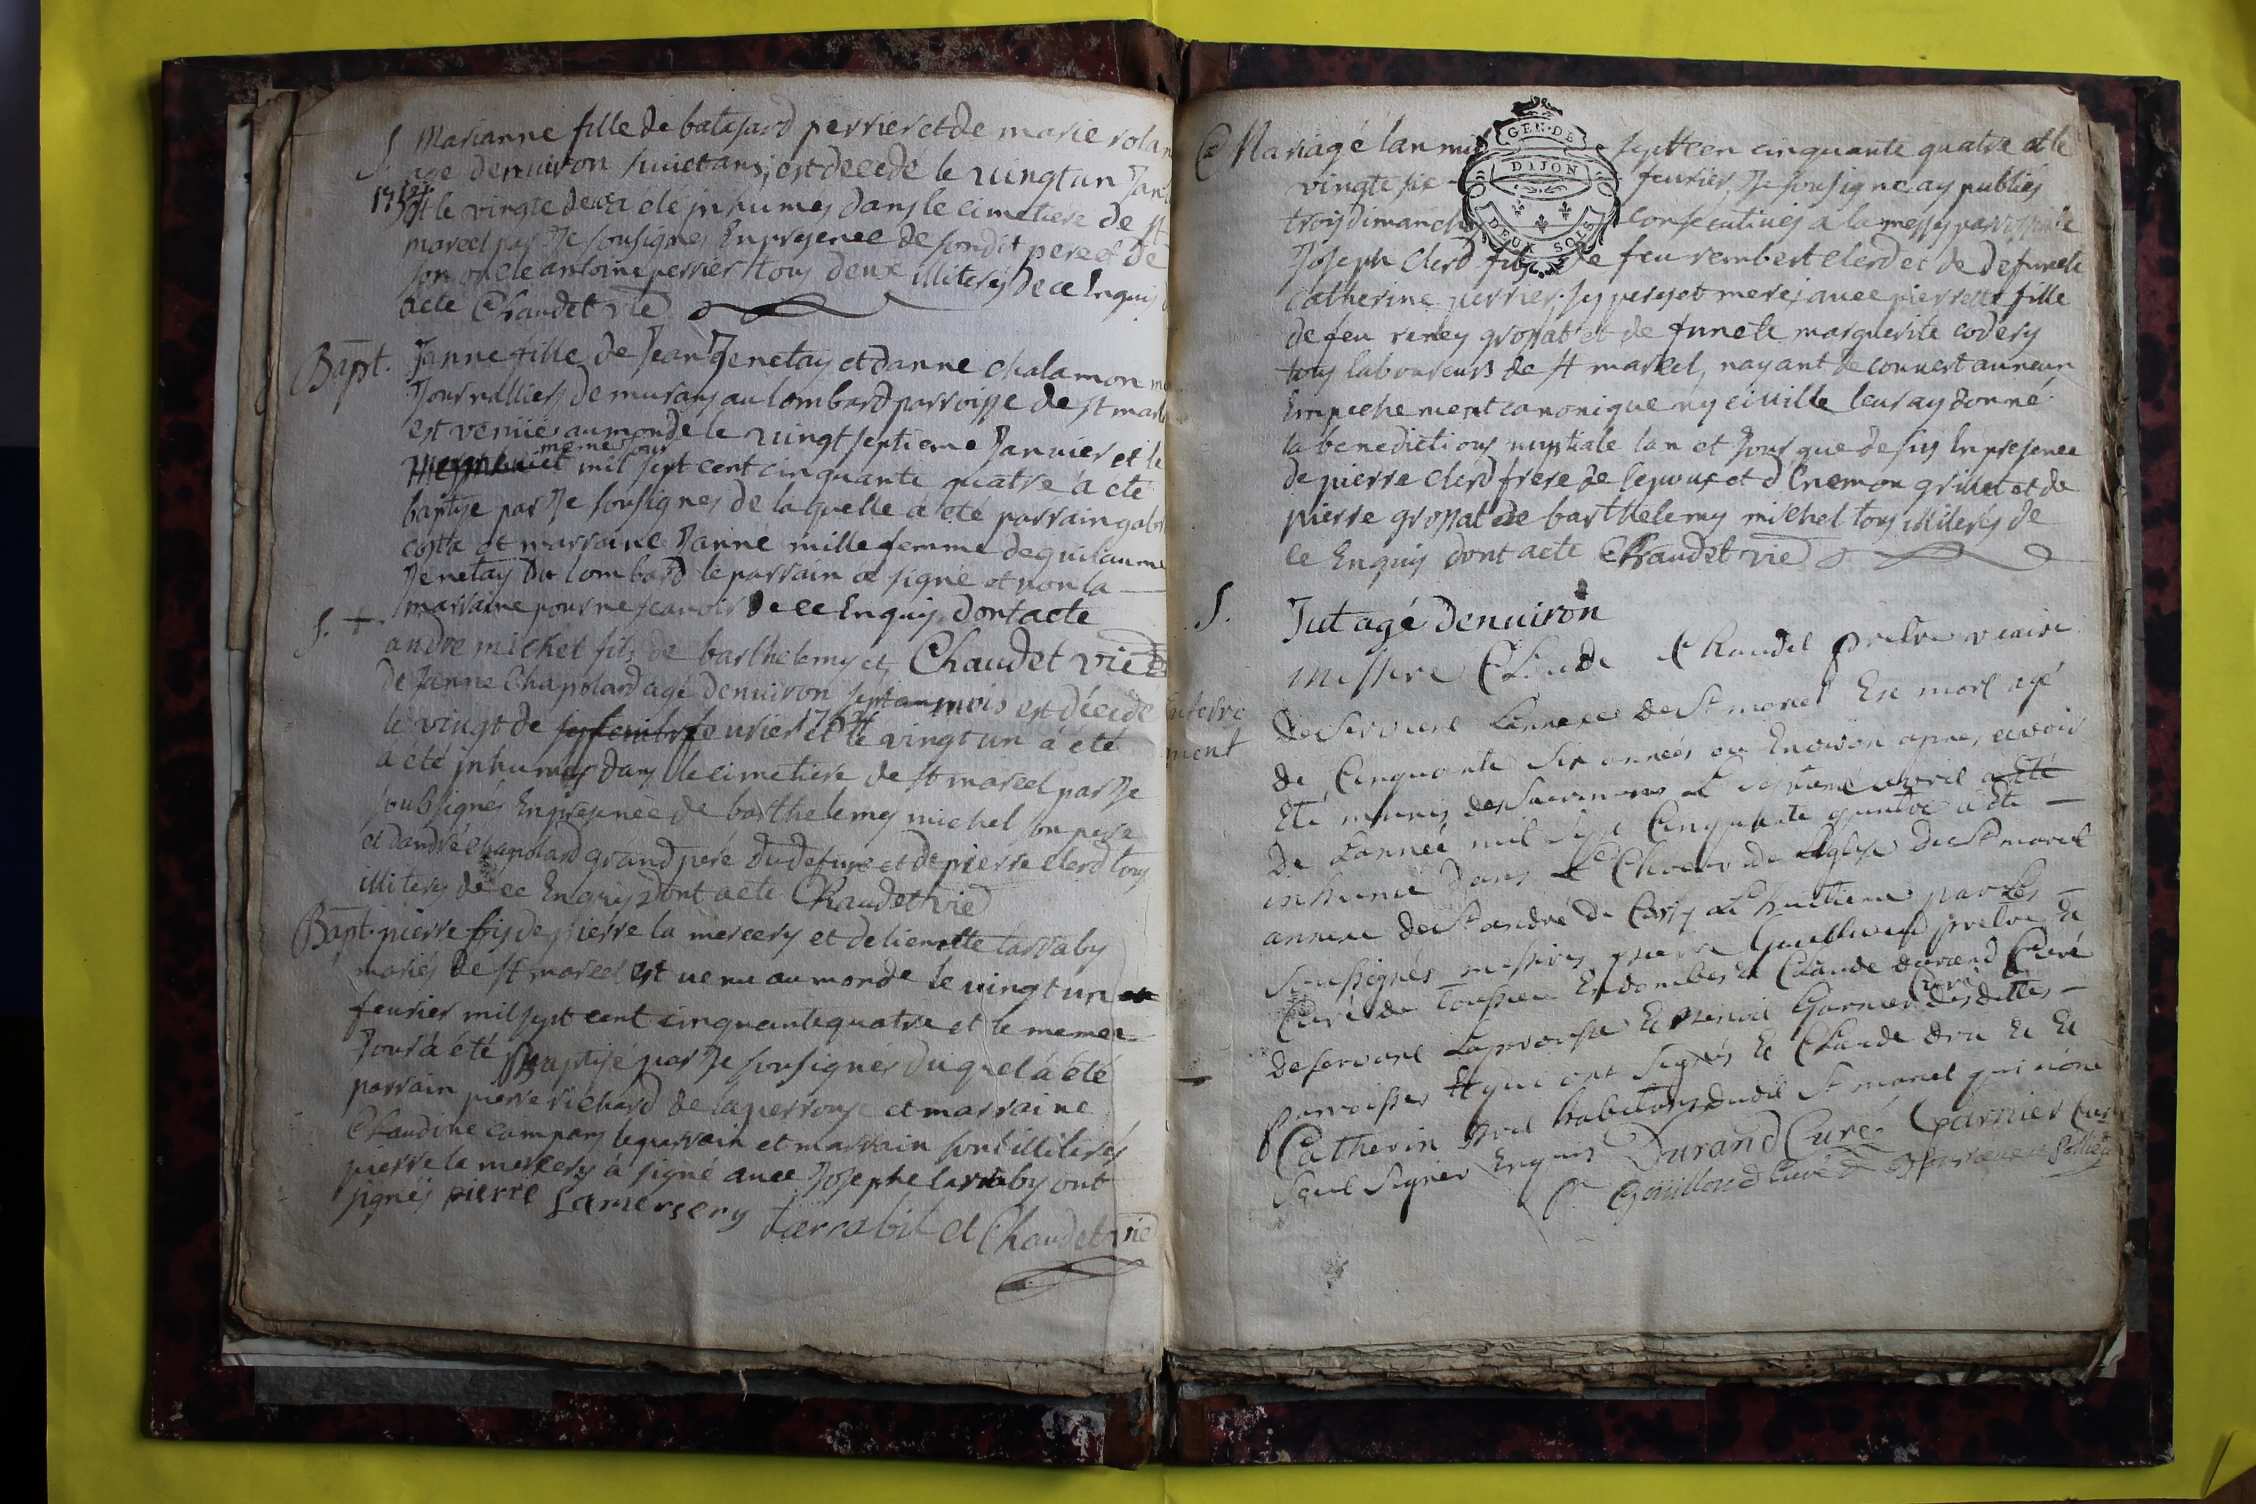 S. Marianne fille de baltasard perrier et de marie rolan
age denuiron huict ans, est decedé le vingt un Jan
1754 et le vingte deux a été inhumes dans le cimetiere de st
marcel par Je sousignes En presence de sondit pere et de
son oncle antoine perrier tous deux illiterés de ce Enquis
acte Chaudet vic
Bapt. Janne fille de Jean Jenetay et danne chalamon
Journalliers de murs au lombard parroisse de st marc
est venüe au monde le vingt septieme Janvier et le
meme Jour
mil sept cent cinquante quatre à été
baptise par Je sousignes de laquelle a été parrain gab
coste et marraine Janne mille femme de guilaume
Jenetay du lombard le parrain a signé et non la
marraine pour ne scavoir de ce Enquis dont acte
S. +. andré michel fils de barthelemy et Chaudet vic
de Janne Chapolard agé denuiron sept mois est décédé
le vingt de feurier 1754 et le vingt un à été
a été inhumes dans le cimetiere de st marcel par Je
soubsignés En presence de barthelemy michel son pere
et dandré chapolard grand peré du defunt et de pierre clerd tous
illiterés de ce Enquis dont acte Chaudet vic
Bapt. pierre fils de pierre la mercery et de lienette larraby
mariés de st marcel est uenu au monde le uingt un
feurier mil sept cent cinquante quatre et le meme
Jour à été Baptisé par Je sousignés duquel à été
parrain pierre richard de laperrouse et marraine
Claudine campan le parrain et marrain sont illiterés
pierre la mercery à signé auec Josephe larraby ont
signés pierre Lamersery
Larrabit et Chaudet vic
Mariagé lan mil sept cen cinquante quatre et le
vingte six feurier, Je sousigne ay publiés
trois dimanche consecutiues a la messe parroissiale
Joseph Clerd fils de feu rembert clerd et de defuncte
Catherine perrier ses peres et meres auec pierrette fille
de feu reney grossat et de functe marguerite codery
tous laboureurs de st marcel, nayant decouuert aucun
Empechement canonique ny ciuille leur ay donné
la benediction nuptiale lan et Jour que desus En presence
de pierre clerd frere de lepoux et dEnemon griuet et de
pierre grossat de barthelemy michel tous illiterés de
ce Enquis dont acte Chaudet vic
S. Jut agé denuiron
Messire Claude Chaudet pretre vicaire
Enterre
ment
desservant Lannexe de St marcel Est mort agé
de Cinquante six années ou Environ apres avoir
Eté munis des Sacremens Le septieme avril
De Lannée mil sept Cinquante quatre à été
inhumé dans Le Choeur de Leglise de St marcel
annexe de St andré de Corsy Le huitieme par Les
soussignés messires pierre Gouilloud pretre et
Curé de Toussieu En dombes et Claude durand Curé
desservant Laperouse et Benoit Garnier Curé des dittes
parroisses Et qui ont signés Et Claude dru Et Et
Catherin habitans dudit St marcel qui n'ont
sçut signer Enquis Durand Curé Garnier Curé
Gouilloud Curé
GEN. DE
DIJON
DEUX SOLS